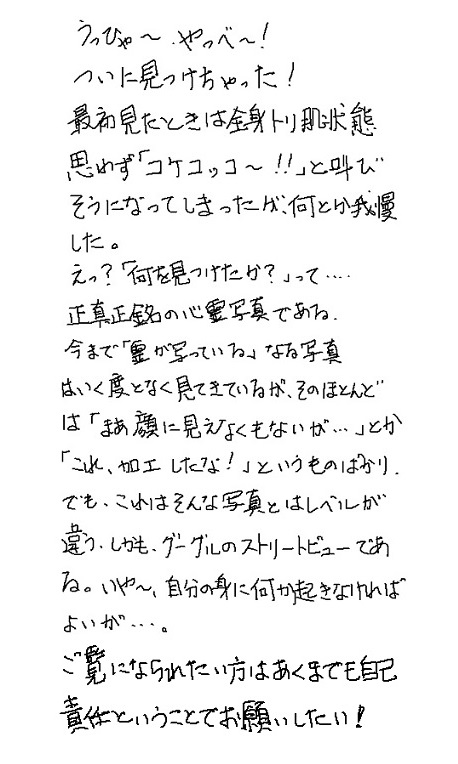 うっひゃ〜、やっべ〜！
ついに見つけちゃった！
最初見たときは全身トリ肌状態
思わず「コケコッコ〜!!」と叫び
そうになってしまったが、何とか我慢
した。
えっ？「何を見つけたか？」って‥‥
正真正銘の心霊写真である.
今まで「霊が写っている」なる写真
はいく度となく見てきているが、そのほとんど
は「まあ顔に見えなくもないが…」とか
「これ、加工したな！」というものばかり.
でも、これはそんな写真とはレベルが
違う、しかも、グーグルのストリートビューであ
る。いや〜、自分の身に何か起きなければ
よいが‥‥。
ご覧になられたい方はあくまでも自己
責任ということでお願いしたい！